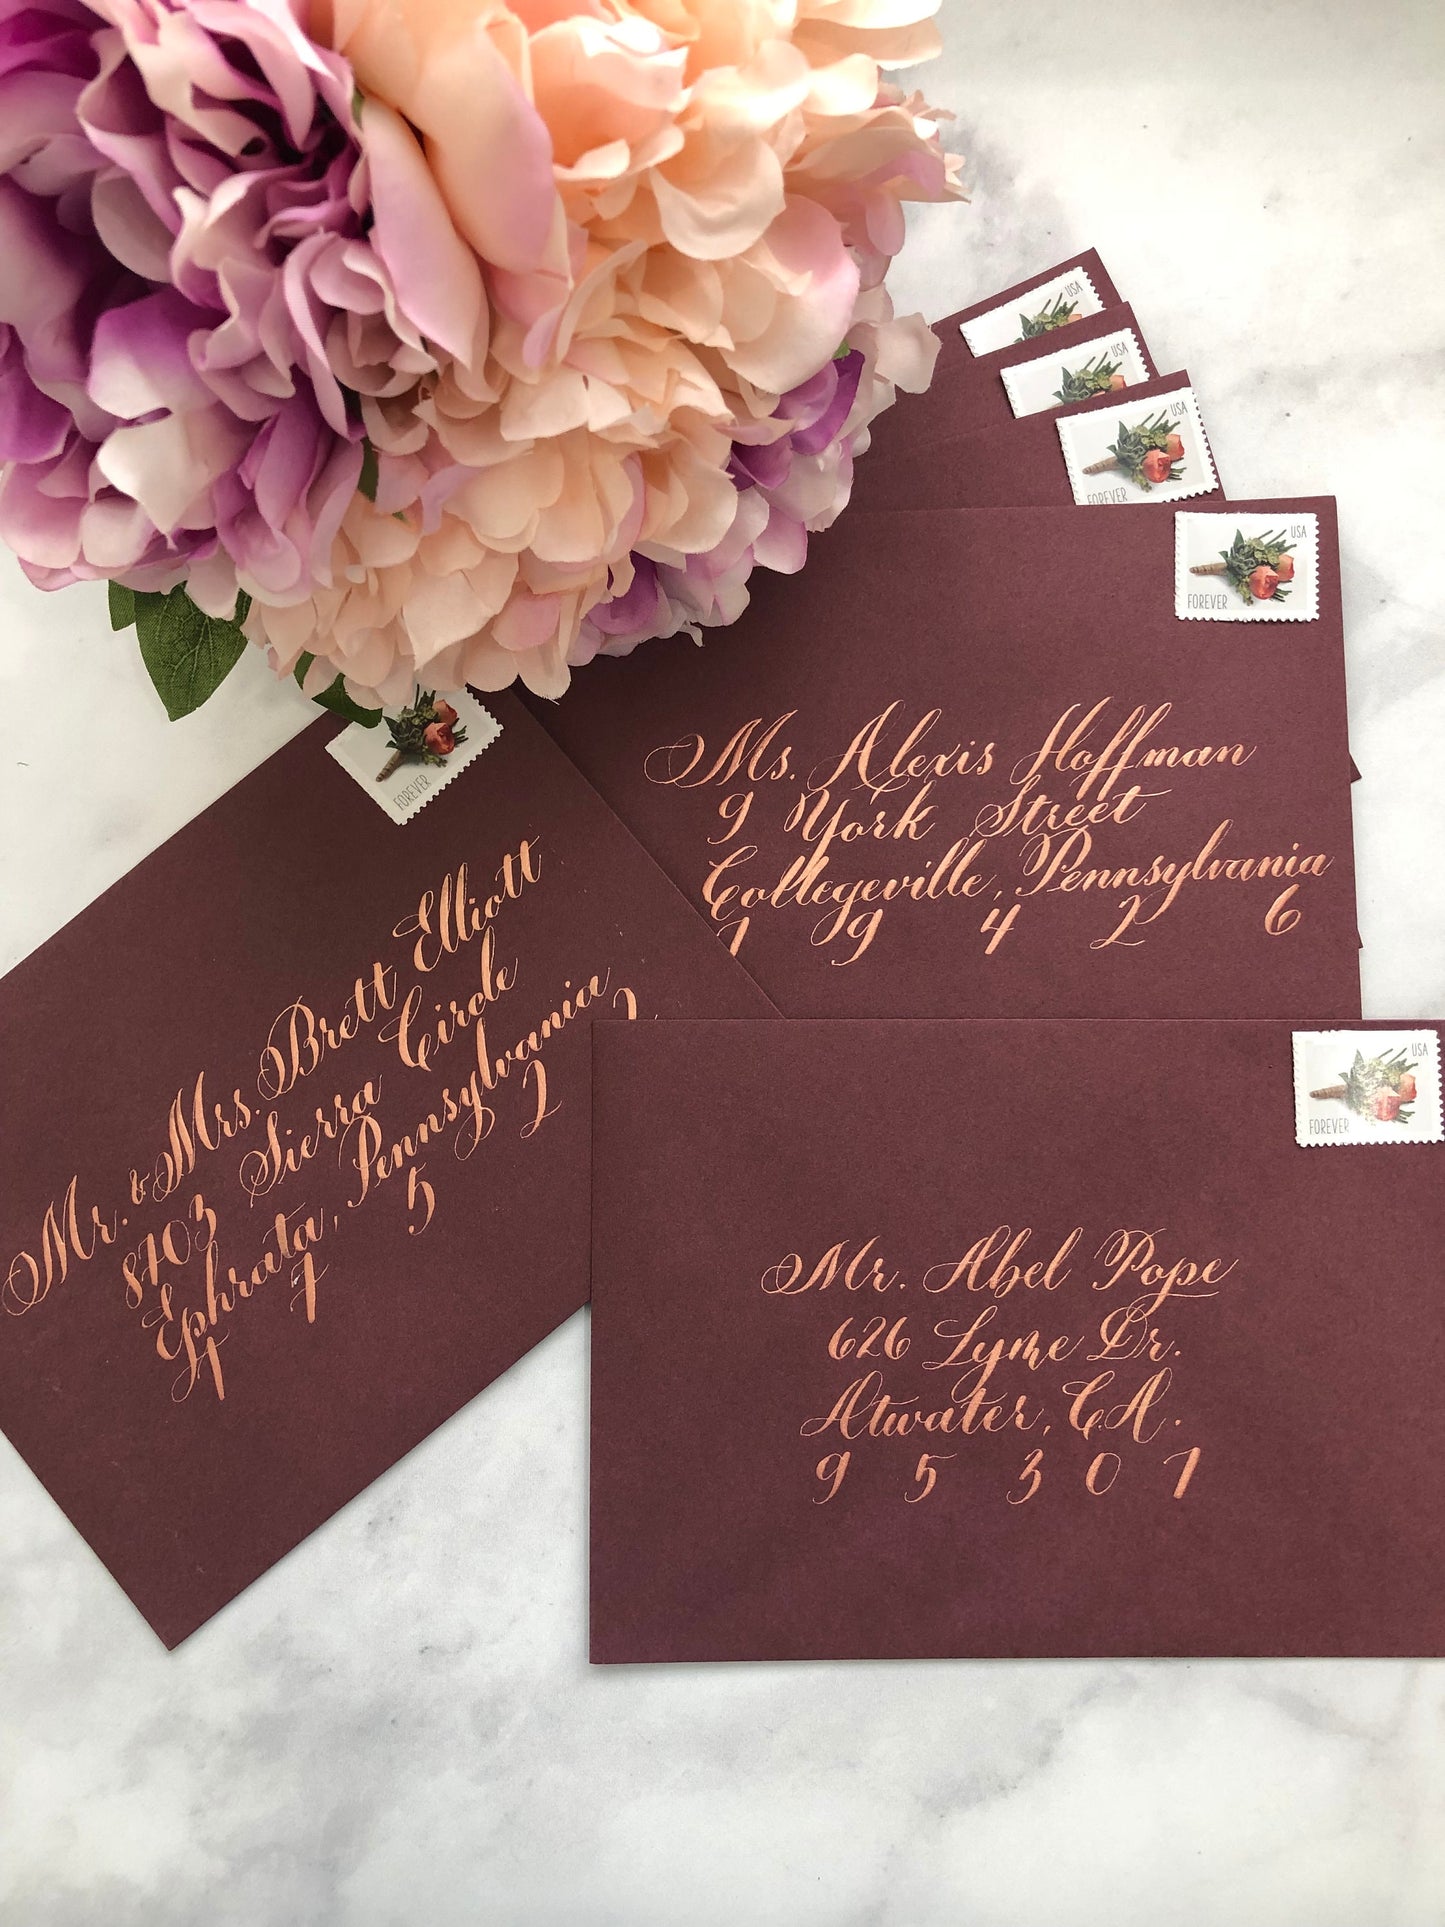 USA
USA
USA
FOREVER
USA
FOREVER
Ms. Alexis Hoffman
9 York Street
Collegeville, Pennsylvania
1 9 4 2 6
FOREVER
Mr. & Mrs. Brett Elliott
8703 Sierra Circle
Ephrata, Pennsylvania
1 7 5 2 2
USA
FOREVER
Mr. Abel Pope
626 Lyme Dr.
Atwater, CA.
9 5 3 0 1